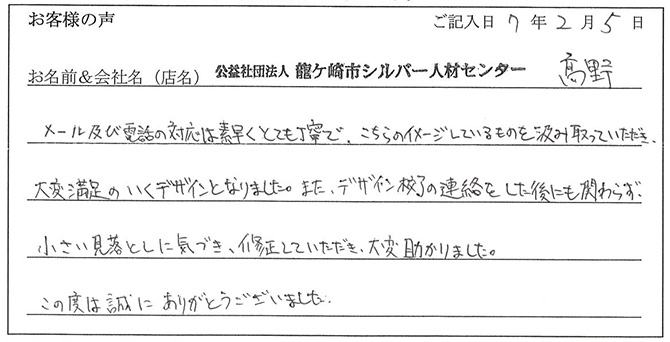 お客様の声 ご記入日 7 年 2 月 5 日
お名前＆会社名（店名） 公益社団法人 龍ケ崎市シルバー人材センター 高野
メール及び電話の対応は素早くとても丁寧で、こちらのイメージしているものを汲み取っていただき、
大変満足のいくデザインとなりました。また、デザイン校了の連絡をした後にも関わらず、
小さい見落としに気づき、修正していただき、大変助かりました。
この度は誠にありがとうございました。